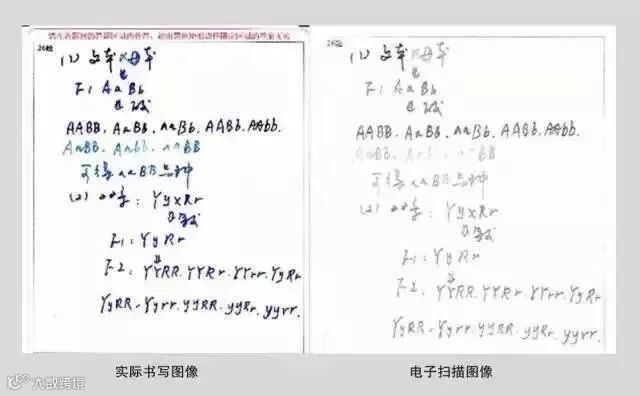 请在各题目的答题区域内作答，超出黑色矩形边框限定区域的答案无效
26题
(1) 父本×母本
F1 AaBb
AABB, AaBB, aaBb, AABb, AAbb,
AaBb, Aabb, aaBB
可得 aaBB 品种
(2) YyxRr
F1: YyRr
F2: YYRR, YYRr, YYrr, YyRr
YyRR, Yyrr, yyRR, yyRr, yyrr.
26题
(1) 父本×母本
F1 AaBb
AABB, AaBB, aaBb, AABb, AAbb,
AaBb, Aabb, aaBB
可得 aaBB 品种
(2) YyxRr
F1: YyRr
F2: YYRR, YYRr, YYrr, YyRr
YyRR, Yyrr, yyRR, yyRr, yyrr.
实际书写图像
电子扫描图像
大数跨境